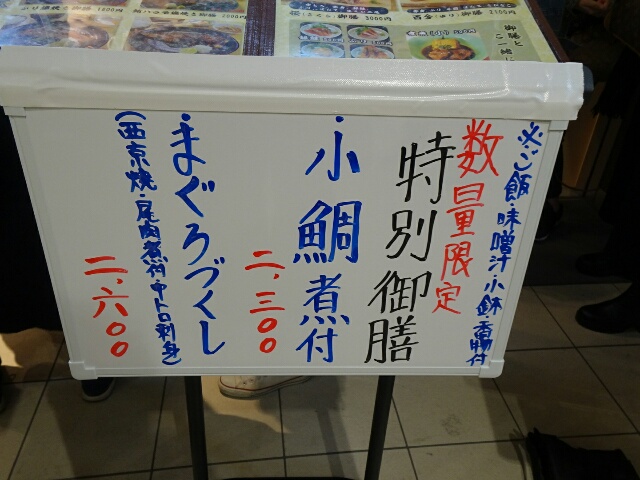 ※ご飯・味噌汁・小鉢・香物付
数量限定
特別御膳
・小鯛煮付
二、三〇〇
・まぐろづくし
(西京焼・尾肉煮付・中トロ刺身)
二、六〇〇
御膳と
ご一緒に